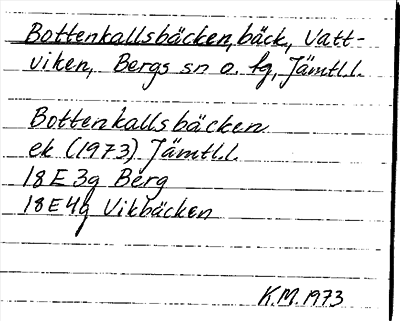 Bottenkallsbäcken, bäck, Vatt-
viken, Bergs sn o. tg, Jämtl.l.
Bottenkallsbäcken
ek (1973) Jämtl.l.
18E 3g Berg
18E4g Vikbäcken
K.M. 1973